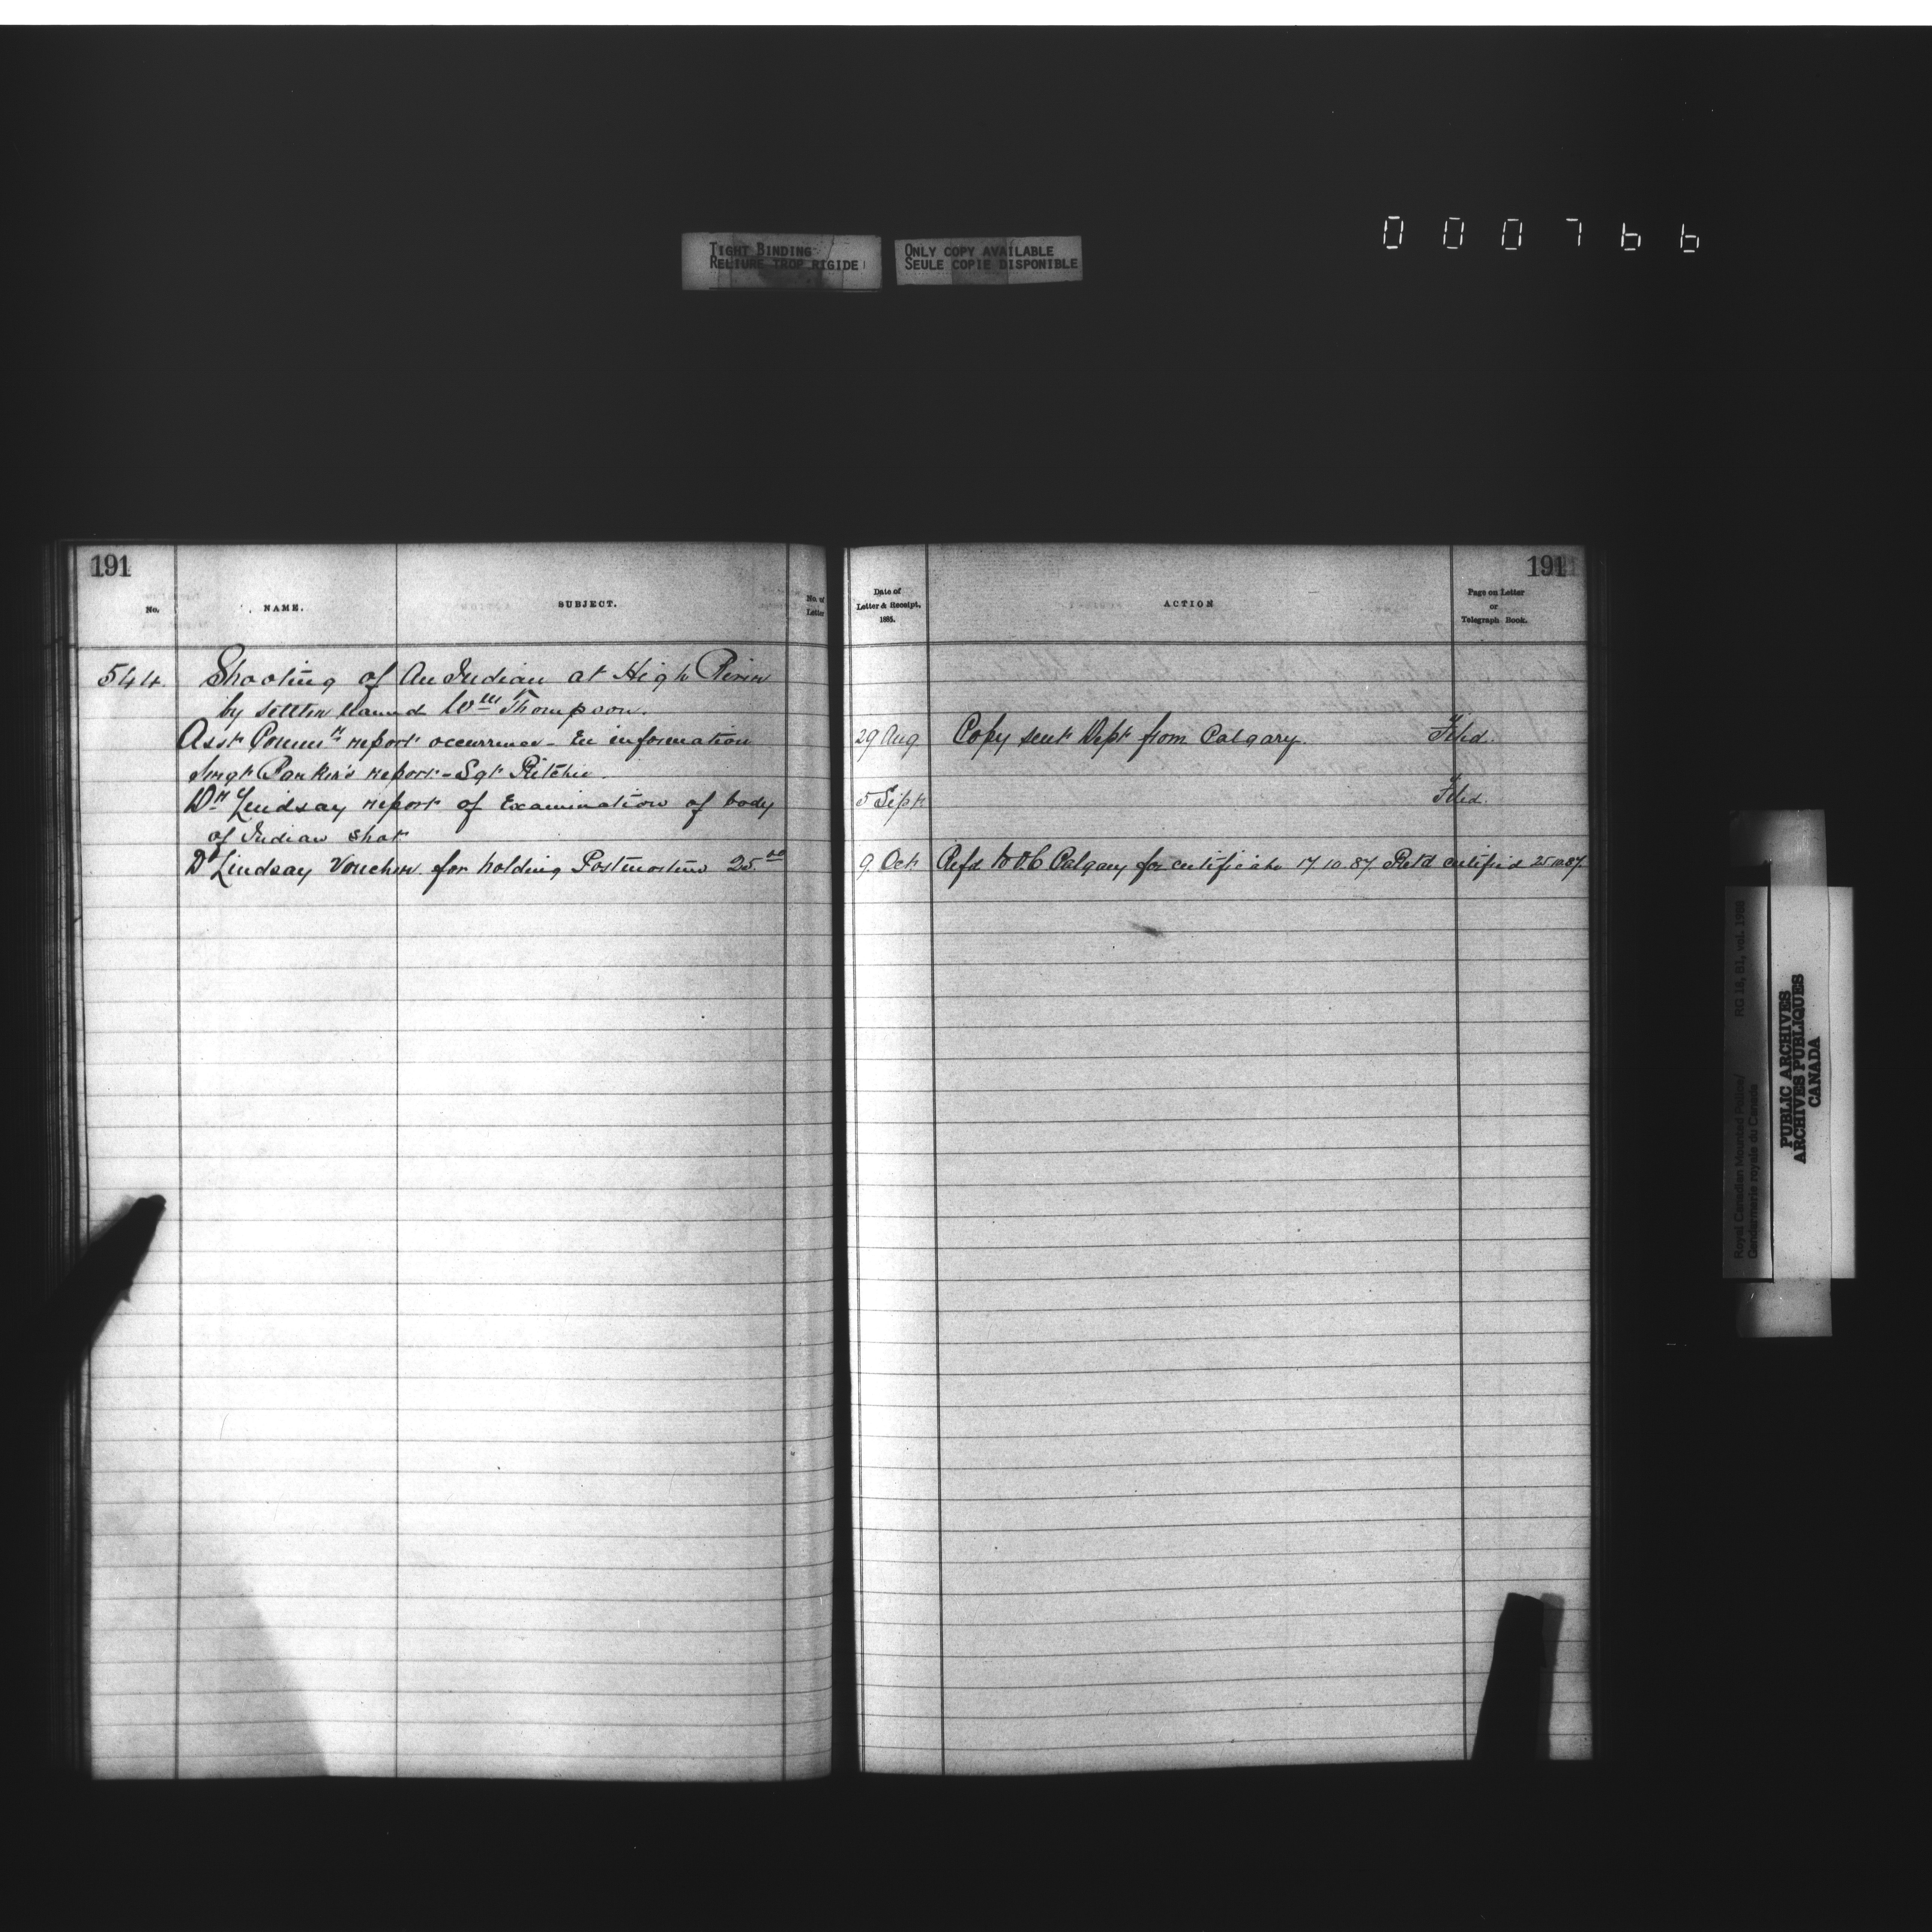 000766
TIGHT BINDING
RELIURE TROP RIGIDE
ONLY COPY AVAILABLE
SEULE COPIE DISPONIBLE
191
No.
NAME.
SUBJECT.
No. of
Letter
544. Shooting of An Indian at High River
by settler named Wm Thompson.
Asst Commr report occurrence - Enc information
Insgt Parker's report - Sgt Ritchie.
Dr Lindsay report of Examination of body
of Indian shot
Dr Lindsay Voucher for holding Postmortem 25.00
191
Date of
Letter & Receipt.
1885.
ACTION
Page on Letter
or
Telegraph Book.
29 Aug Copy sent Dept from Calgary. Filed.
5 Sept Filed.
9. Oct Refd to O.C Calgary for certificate 17.10.87. Retd certified 25.10.87.
Royal Canadian Mounted Police/
Gendarmerie royale du Canada
RG 18, B1, vol. 1988
PUBLIC ARCHIVES
ARCHIVES PUBLIQUES
CANADA